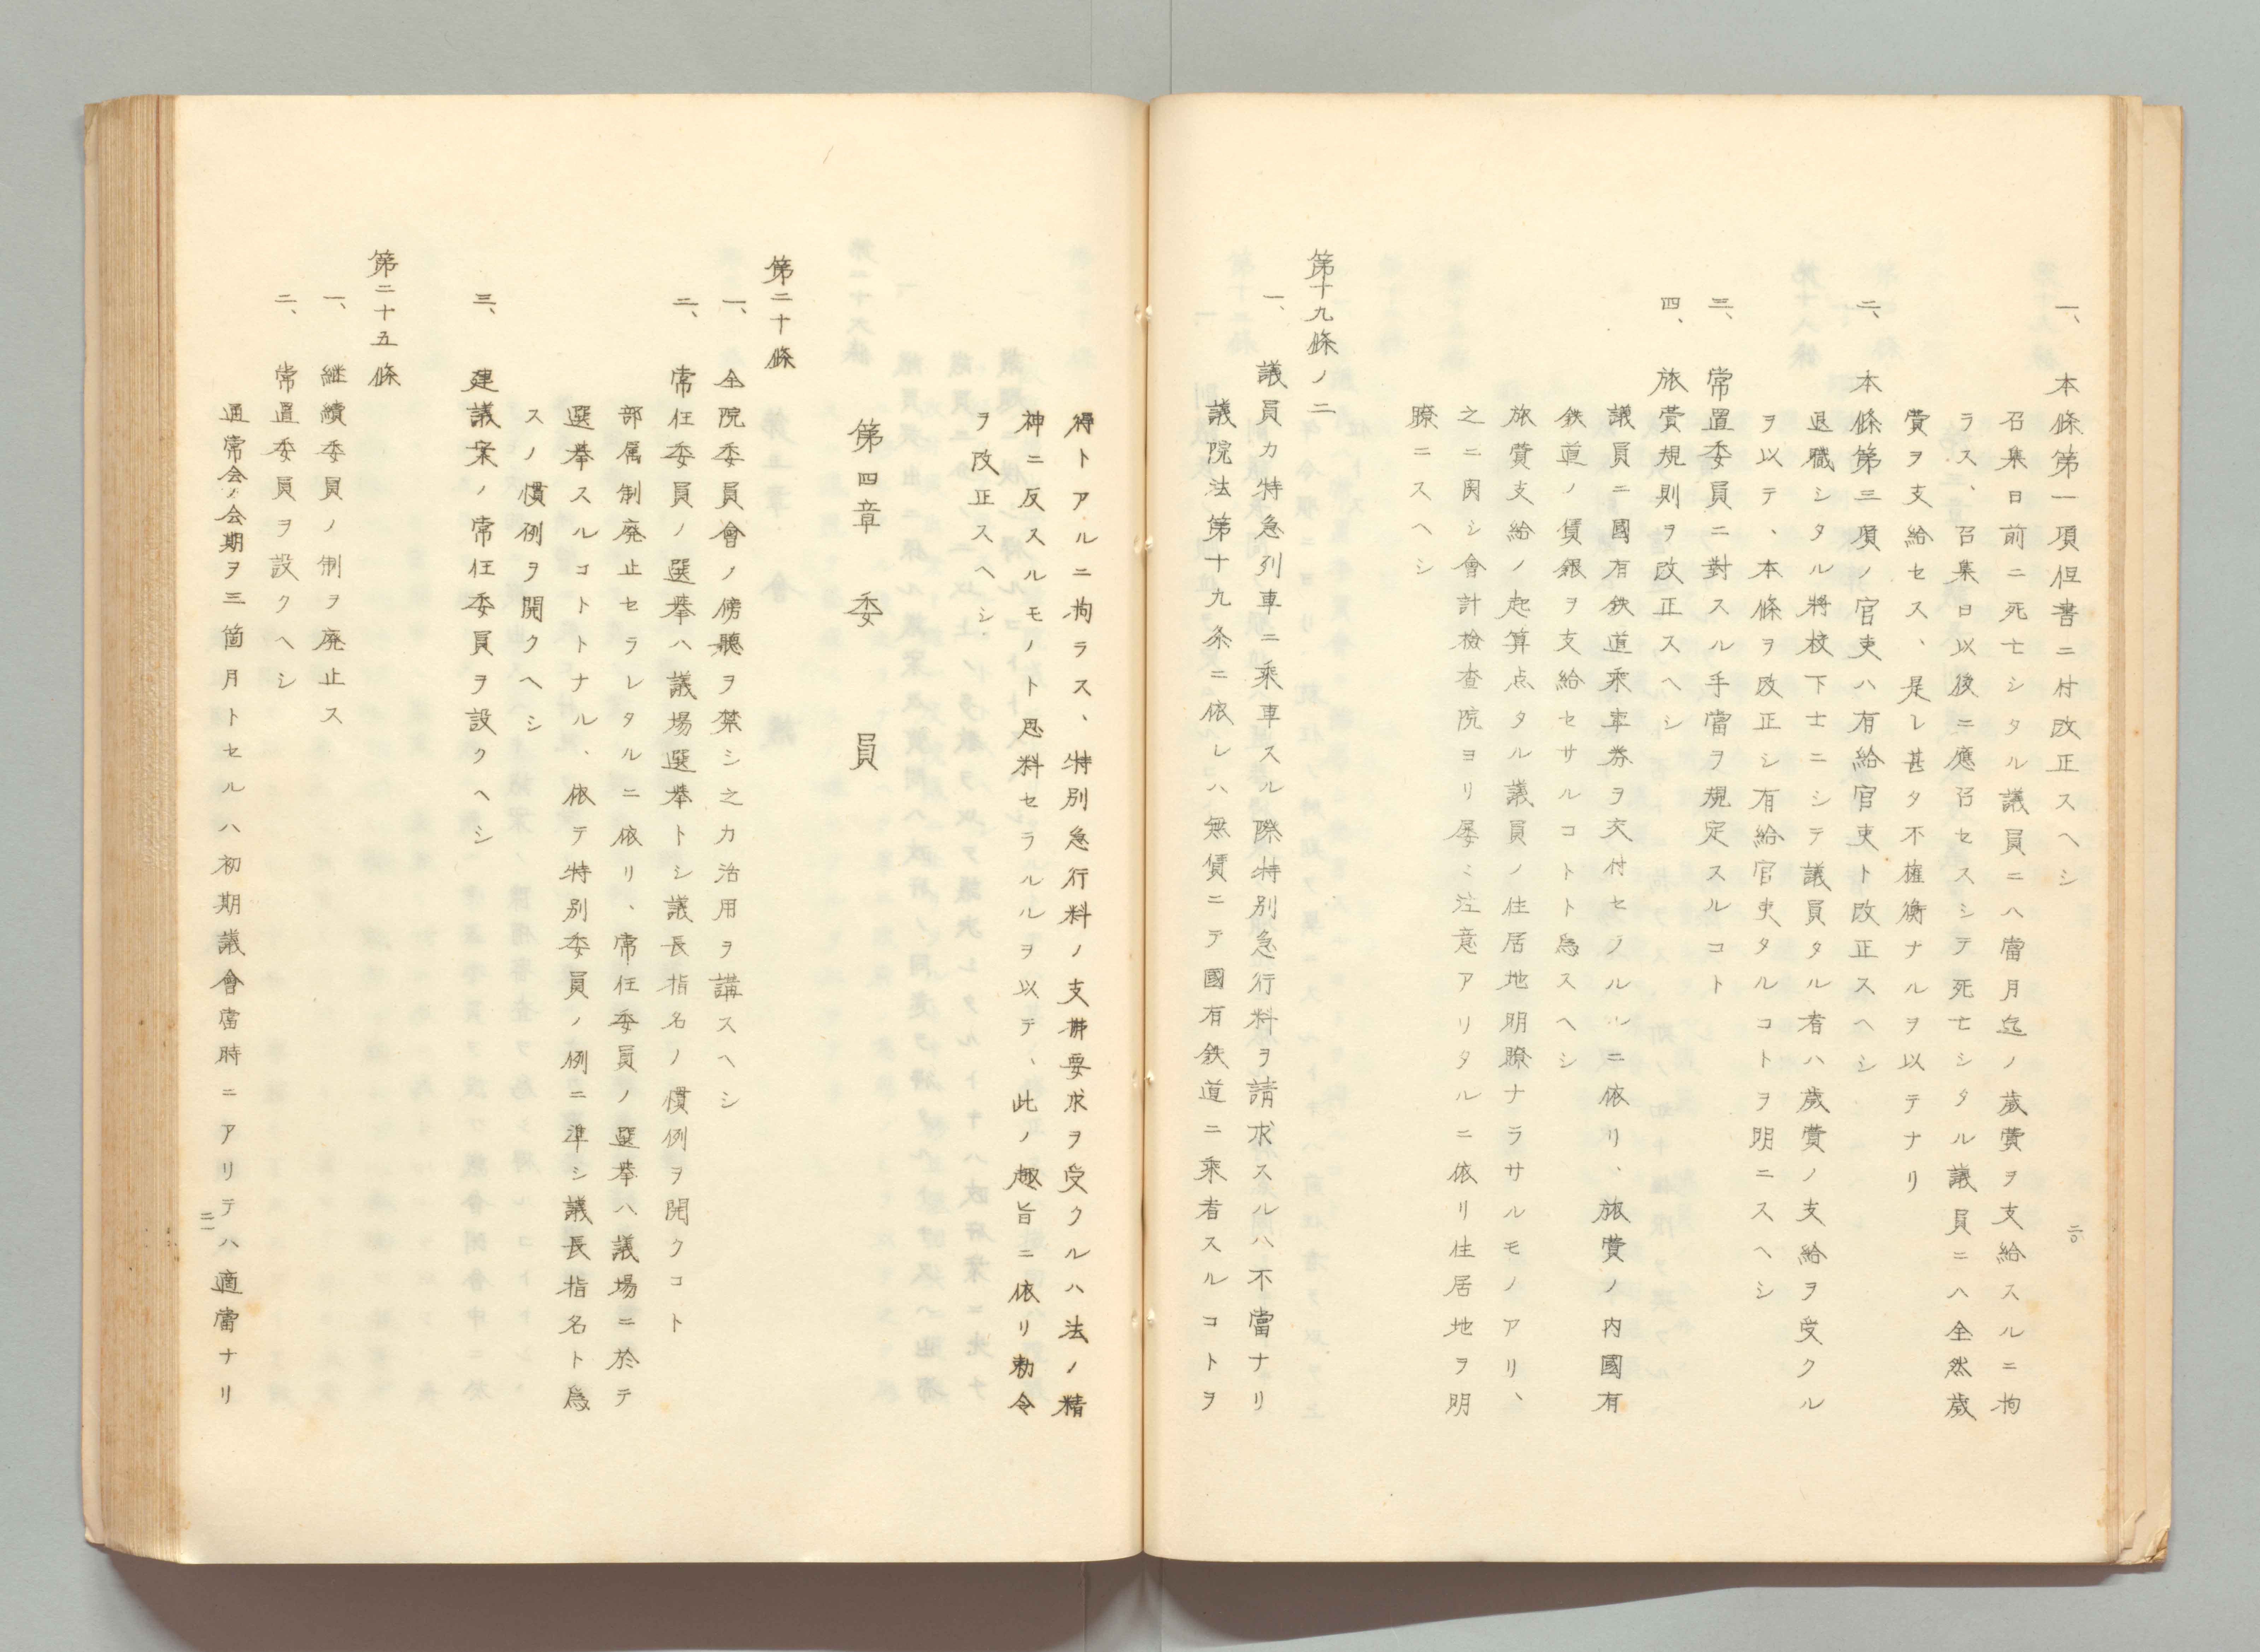 一、本條第一項但書ニ付改正スヘシ
召集日前ニ死亡シタル議員ニハ當月迄ノ歳費ヲ支給スルニ拘
ラス、召集日以後ニ應召セスシテ死亡シタル議員ニハ全然歳
費ヲ支給セス、是レ甚タ不權衡ナルヲ以テナリ
二、本條第三項ノ官吏ハ有給官吏ト改正スヘシ
退職シタル將校下士ニシテ議員タル者ハ歳費ノ支給ヲ受クル
ヲ以テ、本條ヲ改正シ有給官吏タルコトヲ明ニスヘシ
三、常置委員ニ對スル手當ヲ規定スルコト
四、旅費規則ヲ改正スヘシ
議員ニ國有鉄道乘車券ヲ交付セラルルニ依リ、旅費ノ内國有
鉄道ノ賃銀ヲ支給セサルコトト爲スヘシ
旅費支給ノ起算点タル議員ノ住居地明瞭ナラサルモノアリ、
之ニ関シ會計檢査院ヨリ屡〻注意アリタルニ依リ住居地ヲ明
瞭ニスヘシ
第十九條ノ二
一、議員カ特急列車ニ乘車スル際特別急行料ヲ請求スルハ不當ナリ
議院法第十九条ニ依レハ無賃ニテ國有鉄道ニ乘者スルコトヲ
二〇
得トアルニ拘ラス、特別急行料ノ支拂要求ヲ受クルハ法ノ精
神ニ反スルモノト思料セラルルヲ以テ、此ノ趣旨ニ依リ勅令
ヲ改正スヘシ
第四章 委員
第二十條
一、全院委員會ノ傍聽ヲ禁シ之カ活用ヲ講スヘシ
二、常任委員ノ選擧ハ議場選擧トシ議長指名ノ慣例ヲ開クコト
部属制廃止セラレタルニ依リ、常任委員ノ選擧ハ議場ニ於テ
選擧スルコトトナル、依テ特別委員ノ例ニ準シ議長指名ト爲
スノ慣例ヲ開クヘシ
三、建議案ノ常任委員ヲ設クヘシ
第二十五條
一、継續委員ノ制ヲ廃止ス
二、常置委員ヲ設クヘシ
通常会ノ会期ヲ三箇月トセルハ初期議會當時ニアリテハ適當ナリ
二一